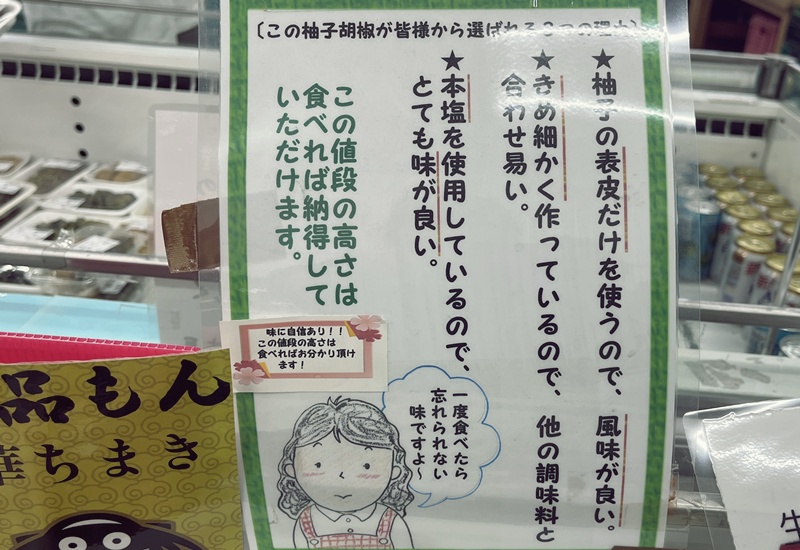 〔この柚子胡椒が皆様から選ばれる3つの理由〕
★柚子の表皮だけを使うので、風味が良い。
★きめ細かく作っているので、他の調味料と
合わせ易い。
★本塩を使用しているので、
とても味が良い。
この値段の高さは
食べれば納得して
いただけます。
味に自信あり！！
この値段の高さは
食べればお分かり頂け
ます！
一度食べたら
忘れられない
味ですよ～
品もん
華ちまき
牛